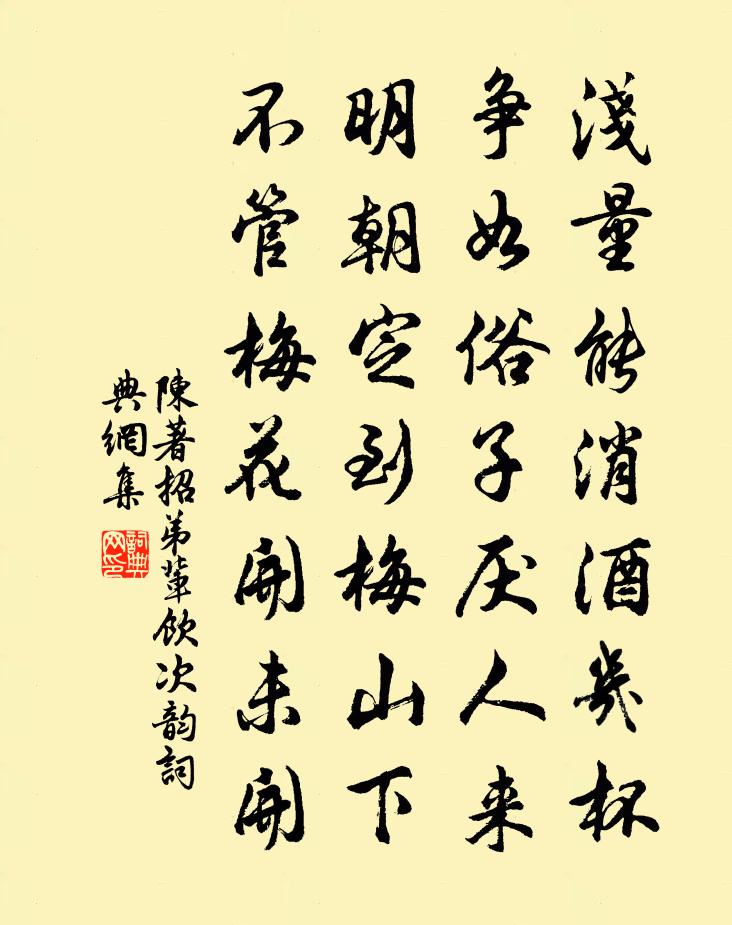 淺量能消酒幾杯
争如俗子厌人来
明朝定到梅山下
不管梅花開未開
陳著招弟輩飲次韵詞
典網集
詞典
网印